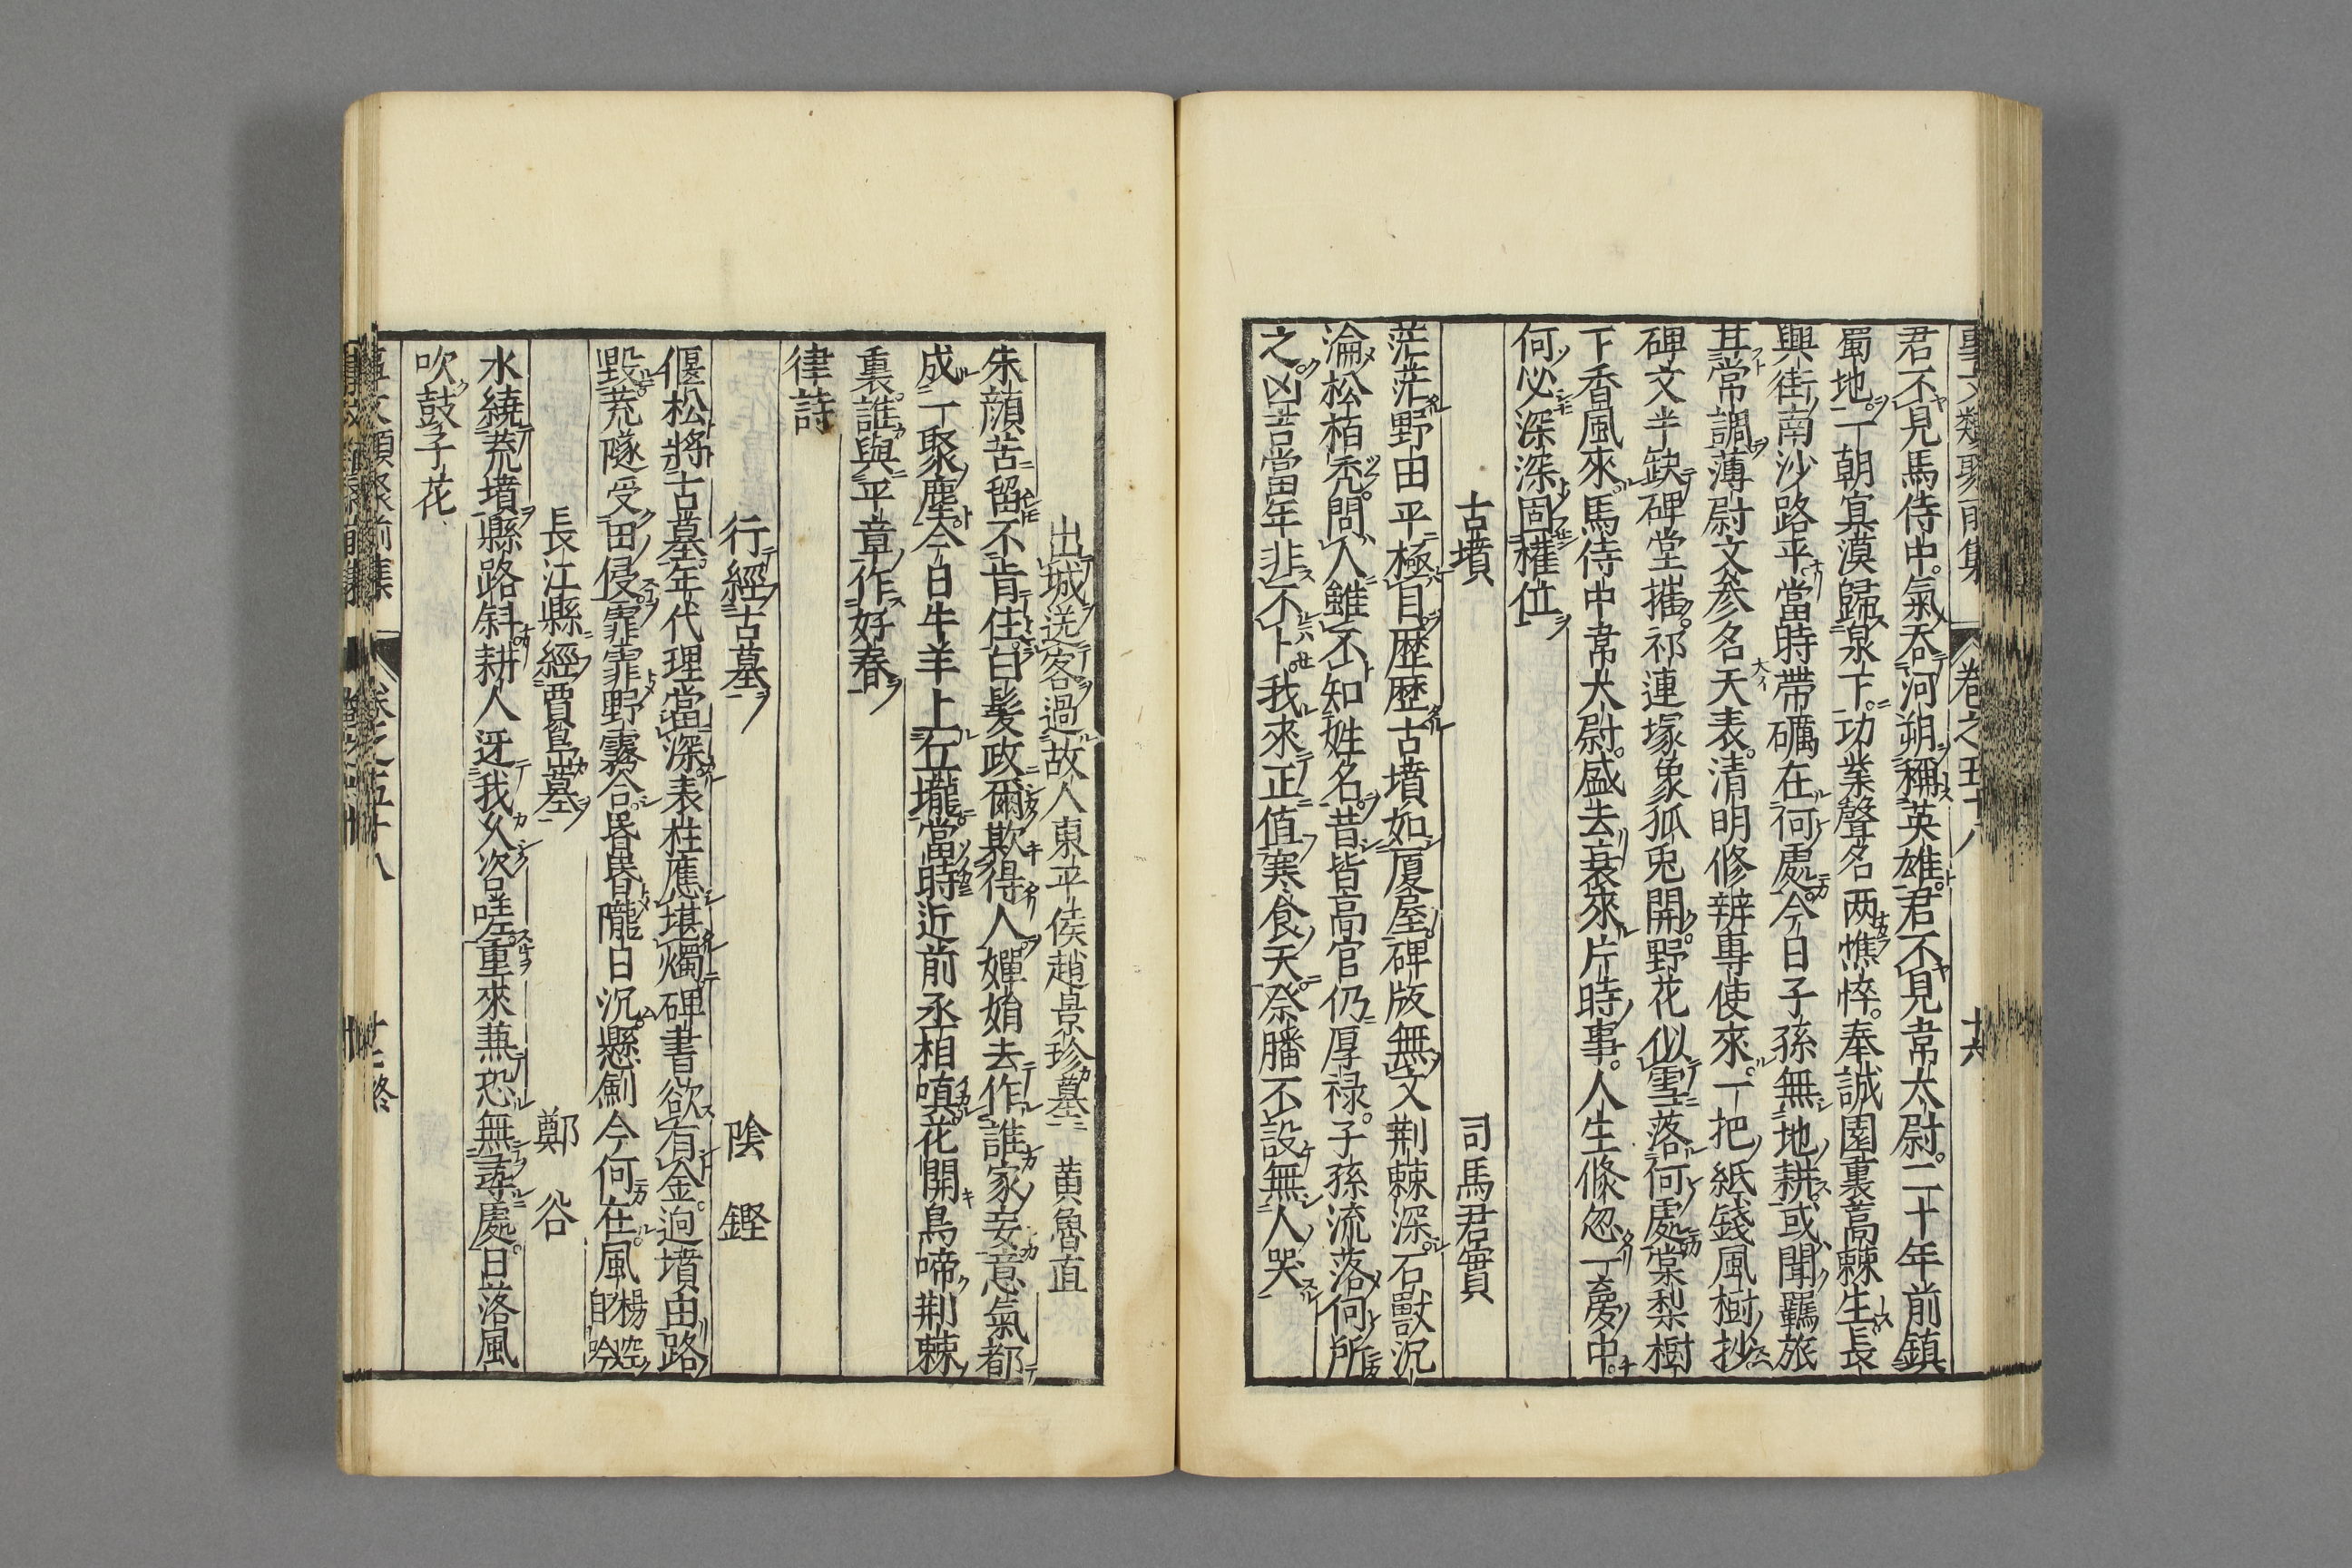 君不見馬侍中氣吞河朔稱英雄君不見韋太尉二十年前鎮
蜀地一朝冥漠歸泉下功業聲名兩憔悴奉誠園裏蒿棘生長
興街南沙路平當時帶礪在何處今日子孫無地耕或聞羈旅
甘常調薄尉文參名天表清明修辦專使來一把紙錢風樹抄
碑文半缺碑堂摧祁連塚象狐兎開野花似雪落何處棠梨樹
下香風來馬侍中韋太尉盛去衰來片時事人生倏忽一夢中
何必深深固權位
古墳 司馬君實
茫茫野田平極目歷歷古墳如厦屋碑版無文荆棘深石獸沉
淪松栢禿問人雖不知姓名昔皆高官仍厚祿子孫流落何所
之凶吉當年非不卜我來正值寒食天祭膰不設無人哭
出城送客過故人東平侯趙景珍墓 黃魯直
朱顔苦留不肯住白髮政爾欺得人嬋娟去作誰家妾意氣都
成一聚塵今日牛羊上丘壠當時近前丞相嗔花開鳥啼荆棘
裏誰與平章作好春
律詩
行經古墓 陰 鏗
偃松將古墓年代理當深表柱應堪燭碑書欲有金迥墳由路
毀荒隧受田侵霏霏野霧合昬昬隴日沉懸劒今何在風楊空自吟
長江縣經賈島墓 鄭 谷
水繞荒墳縣路斜耕人訝我久咨嗟重來兼恐無尋處日落風
吹鼓子花
事文類聚前集 卷之五十八